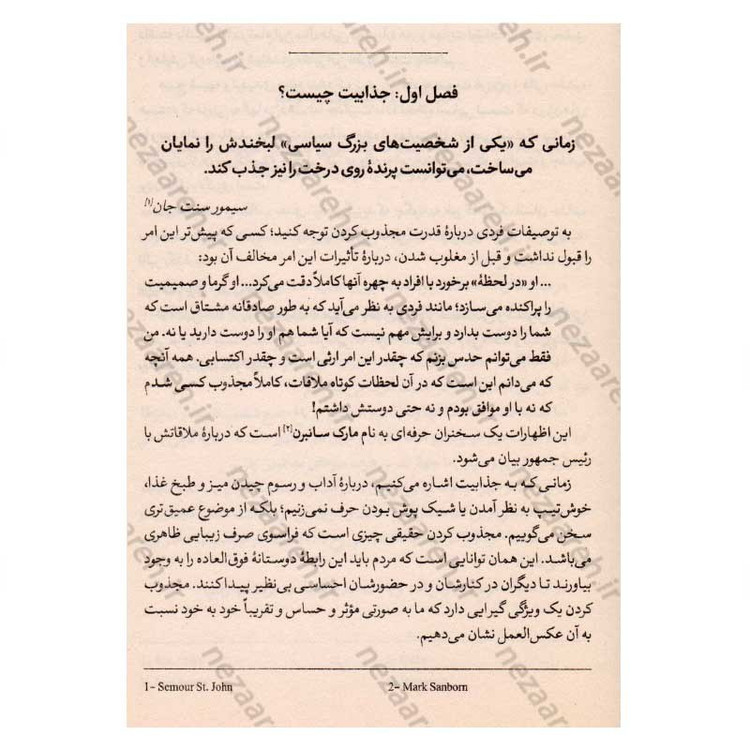 فصل اول: جذابیت چیست؟
زمانی که «یکی از شخصیت‌های بزرگ سیاسی» لبخندش را نمایان
می‌ساخت، می‌توانست پرندهٔ روی درخت را نیز جذب کند.
سیمور سنت جان[۱]
به توصیفات فردی دربارهٔ قدرت مجذوب کردن توجه کنید؛ کسی که پیش‌تر این امر
را قبول نداشت و قبل از مغلوب شدن، دربارهٔ تأثیرات این امر مخالف آن بود:
... او «در لحظهٔ» برخورد با افراد به چهره آنها کاملاً دقت می‌کرد... او گرما و صمیمیت
را پراکنده می‌سازد؛ مانند فردی به نظر می‌آید که به طور صادقانه مشتاق است که
شما را دوست بدارد و برایش مهم نیست که آیا شما هم او را دوست دارید یا نه. من
فقط می‌توانم حدس بزنم که چقدر این امر ارثی است و چقدر اکتسابی. همه آنچه
که می‌دانم این است که در آن لحظات کوتاه ملاقات، کاملاً مجذوب کسی شدم
که نه با او موافق بودم و نه حتی دوستش داشتم!
این اظهارات یک سخنران حرفه‌ای به نام مارک سانبرن[۲] است که دربارهٔ ملاقاتش با
رئیس جمهور بیان می‌شود.
زمانی که به جذابیت اشاره می‌کنیم، دربارهٔ آداب و رسوم چیدن میز و طبخ غذا،
خوش‌تیپ به نظر آمدن یا شیک پوش بودن حرف نمی‌زنیم؛ بلکه از موضوع عمیق‌تری
سخن می‌گوییم. مجذوب کردن حقیقی چیزی است که فراسوی صرف زیبایی ظاهری
می‌باشد. این همان توانایی است که مردم باید این رابطهٔ دوستانهٔ فوق‌العاده را به وجود
بیاورند تا دیگران در کنارشان و در حضورشان احساسی بی‌نظیر پیدا کنند. مجذوب
کردن یک ویژگی گیرایی دارد که ما به صورتی مؤثر و حساس و تقریباً خود به خود نسبت
به آن عکس‌العمل نشان می‌دهیم.
1- Semour St. John
2- Mark Sanborn
nezaareh.ir